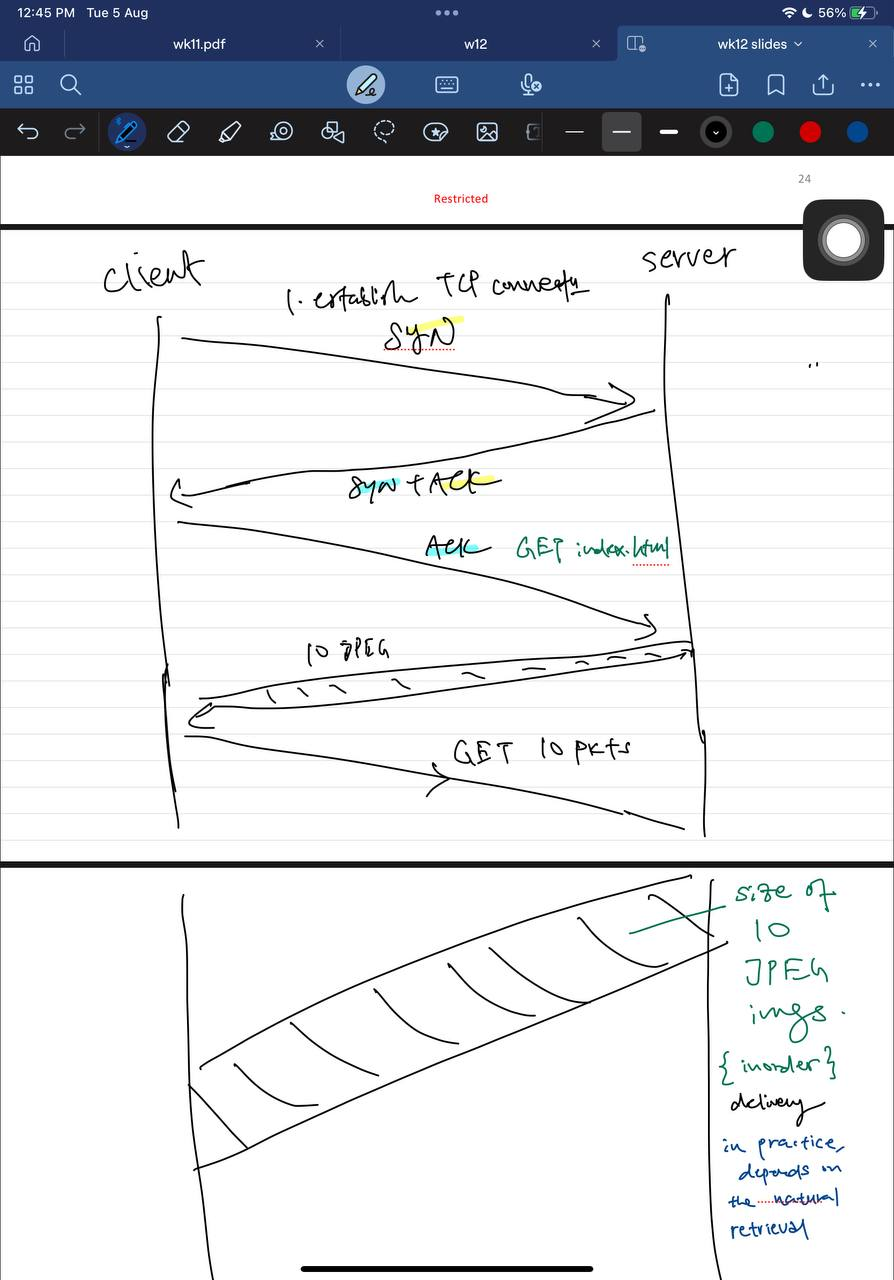 12:45 PM Tue 5 Aug
56%
wk11.pdf
w12
wk12 slides
24
Restricted
client
server
1. establish TCP
SYN
SYN + ACK
ACK GET index.html
10 JPEG
GET 10 pkts
size of
10
JPEG
imgs.
{inorder}
delivery
in practice,
depends on
the natural
retrieval